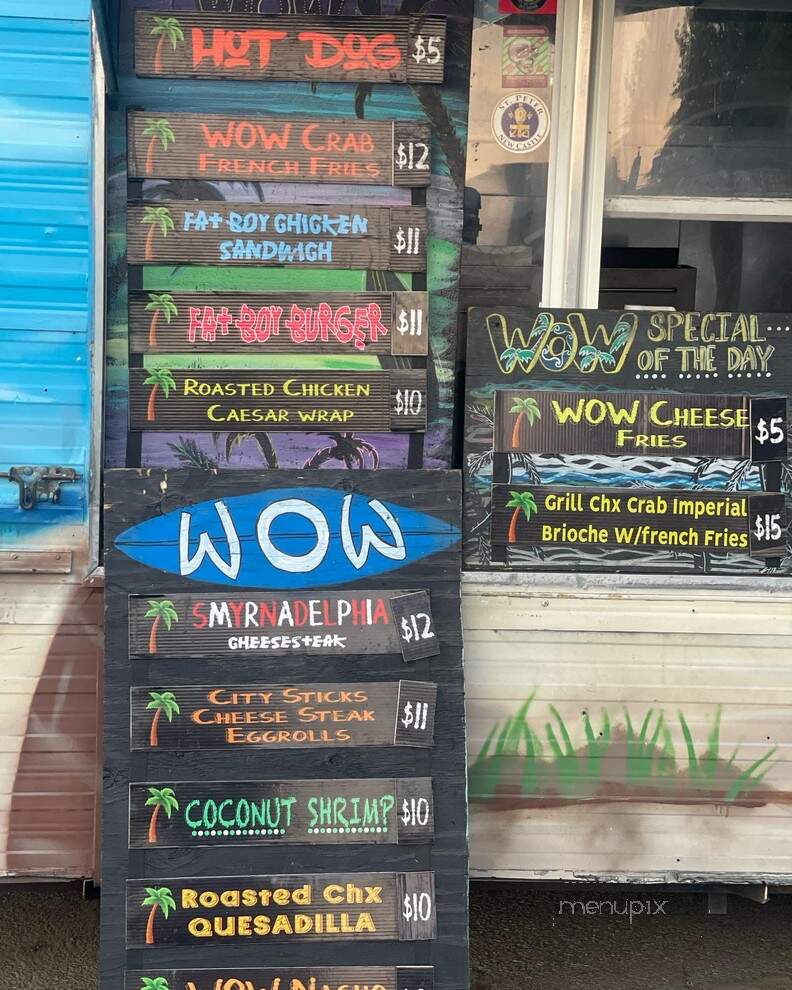 HOT DOG $5
WOW CRAB
FRENCH FRIES $12
FAT BOY CHICKEN
SANDWICH $11
FAT BOY BURGER $11
ROASTED CHICKEN
CAESAR WRAP $10
WOW
SMYRNADELPHIA
CHEESESTEAK $12
CITY STICKS
CHEESE STEAK
EGGROLLS $11
COCONUT SHRIMP $10
Roasted Chx
QUESADILLA $10
WOW NACHO
ST. PETER
NEW CASTLE
WOW SPECIAL...
OF THE DAY
WOW CHEESE
FRIES $5
Grill Chx Crab Imperial
Brioche W/french Fries $15
menupix